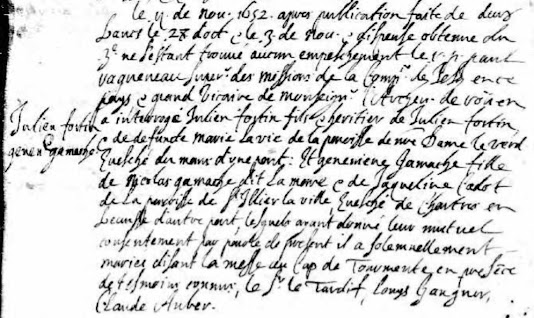 le 11 de nov. 1652. apres publication faite de deux
bancs le 28 d'oct. & le 3. de nov. & dispense obtenue du
3.e ne s'estant trouvé aucun empeschement le r. p. paul
ragueneau super.r des missions de la Comp.ie de Jesus en ce
pays & grand vicaire de monseign.r l'Archev. de rouen
a interrogé Julien fortin fils & heritier de Julien fortin
Julien fortin
& de defuncte marie la vie de la paroisse de nre Dame le verd
genev. gamache
Evesché du mans d'une part : Et genevieve Gamache fille
de nicolas gamache dit la mare & de Jaqueline Cadot
de la paroisse de St Illier la ville Evesché de Chartres en
beausse d'autre part, lesquels ayant donné leur mutuel
consentement par parole de present il a solemnellement
mariés disant la messe au Cap de Tourmente, en presēce
de tesmoins connus, le Sr. le Tardif, Louys Gaugner,
Claude Auber.